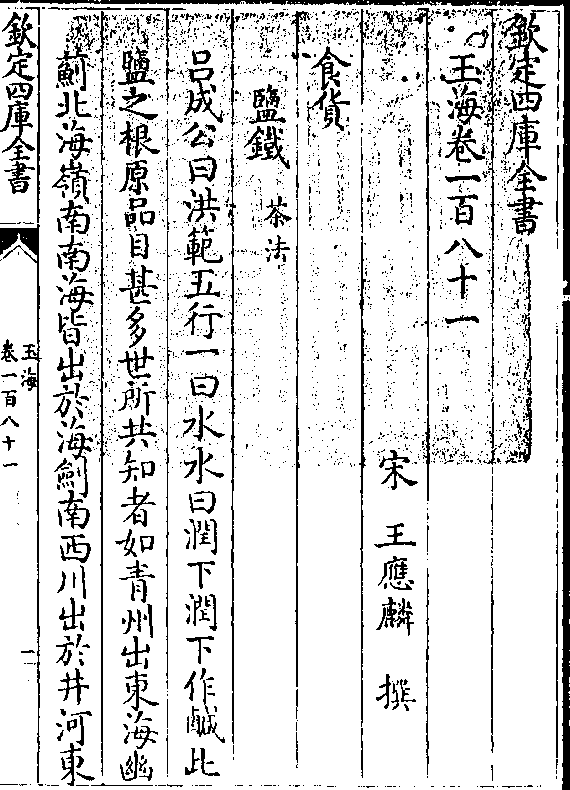 欽定四庫全書
玉海卷一百八十一
宋 王應麟 撰
食貨
鹽鐵 茶法
吕成公曰洪範五行一曰水水曰潤下潤下作鹹此
鹽之根原品目甚多世所共知者如青州出東海幽
薊北海嶺南南海皆出於海劍南西川出於井河東
欽定四庫全書
玉海
卷一百八十一
一